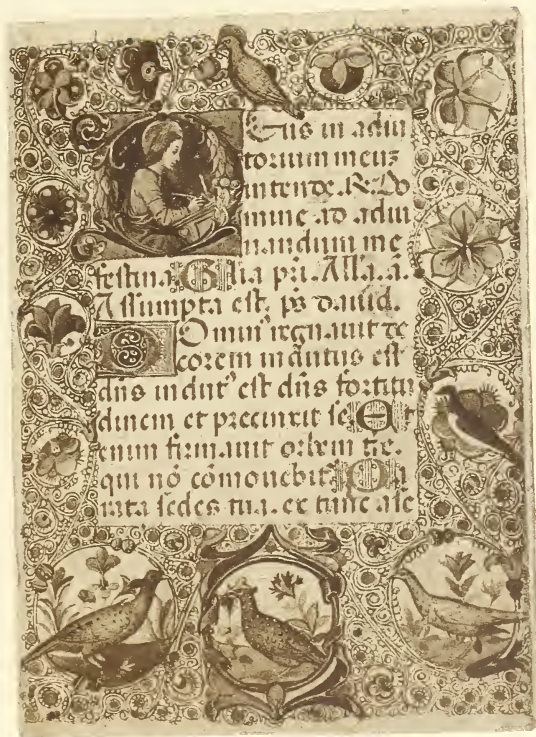 Eus in adiu
torium meuz
intende. R. Do
mine ad adiu
uandum me
festina. Glia pri. Alla. a.
Assumpta est. ps dauid.
Domin' regnauit de
corem indutus est
dns indut' est dns fortitu
dinem et precinxit se. Et
enim firmauit orbem tre.
qui nō cōmouebit' Pa
rata sedes tua. ex tunc a se